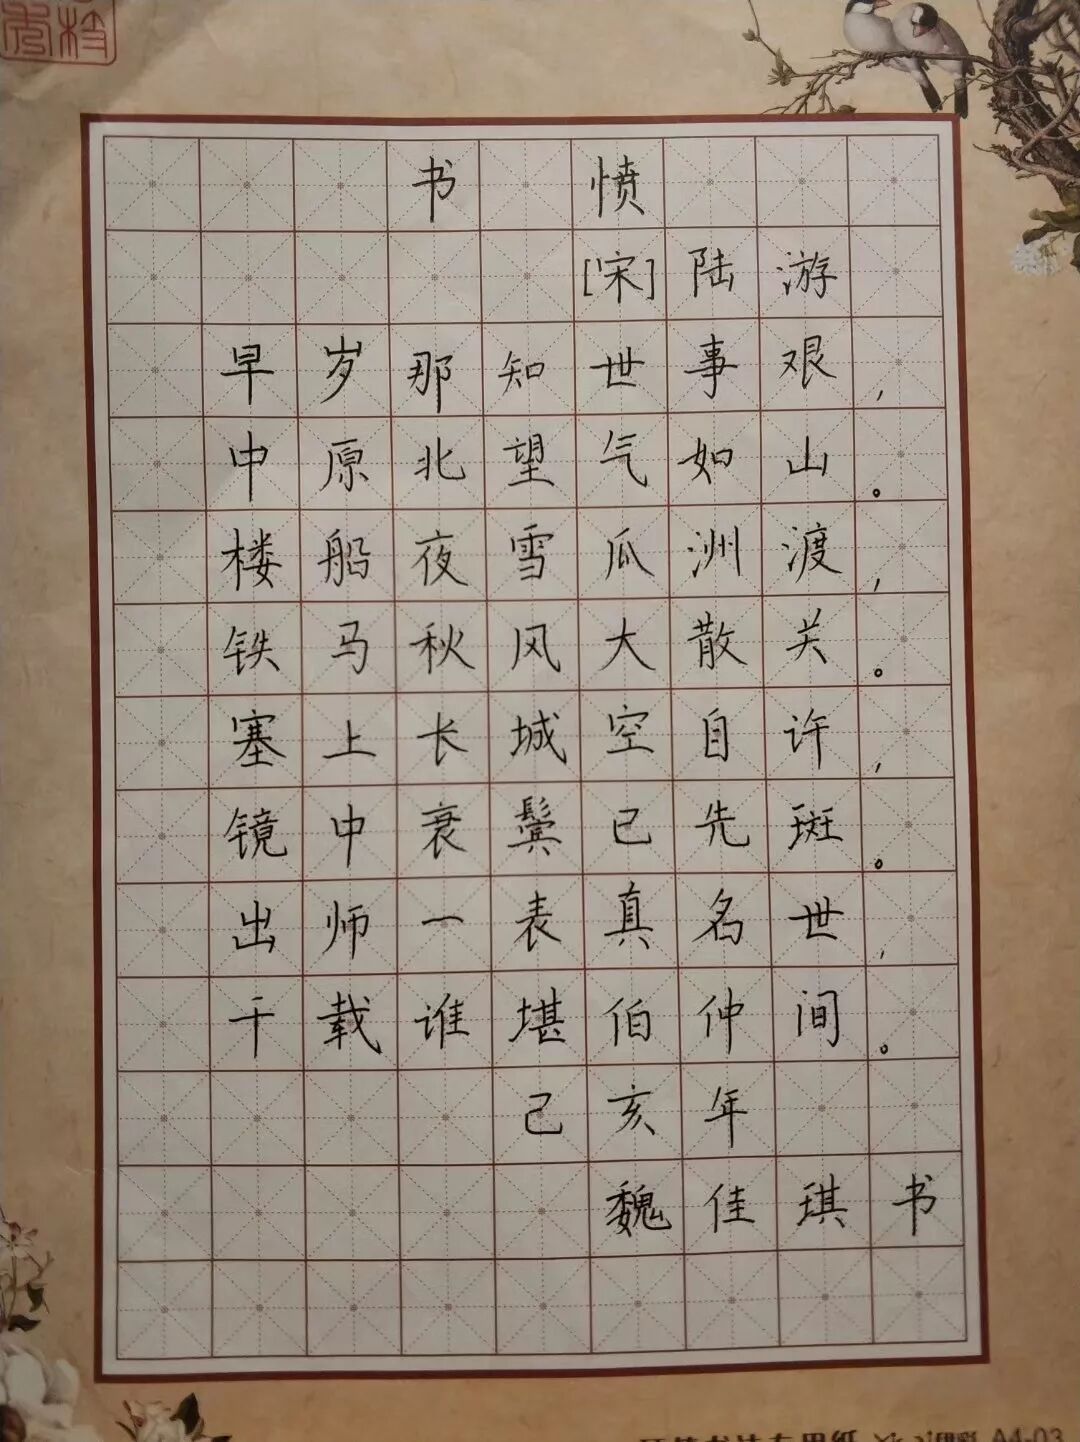 书愤
[宋]陆游
早岁那知世事艰,
中原北望气如山。
楼船夜雪瓜洲渡,
铁马秋风大散关。
塞上长城空自许,
镜中衰鬓已先斑。
出师一表真名世,
千载谁堪伯仲间。
己亥年
魏佳琪书
A4-03